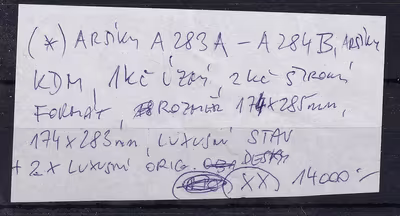 (*) ARŠÍKY A 283A – A 284B, ARŠÍKY
KDM, 1Kč ÚZKÝ, 2Kč STROMÍ
FORMÁT, ROZMĚR 174x285mm,
174x283mm, LUXUSNÍ STAV
+ 2x LUXUSNÍ ORIG. DESKY
(XX) 14000.-